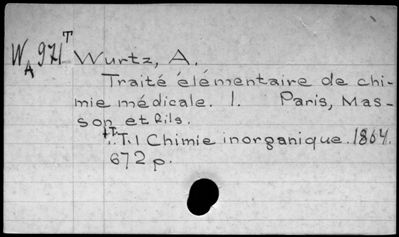 WA 971T Wurtz, A.
Traité élémentaire de chi-
mie médicale. 1. Paris, Mas-
son et fils.
T. 1 Chimie inorganique. 1864.
672 p.